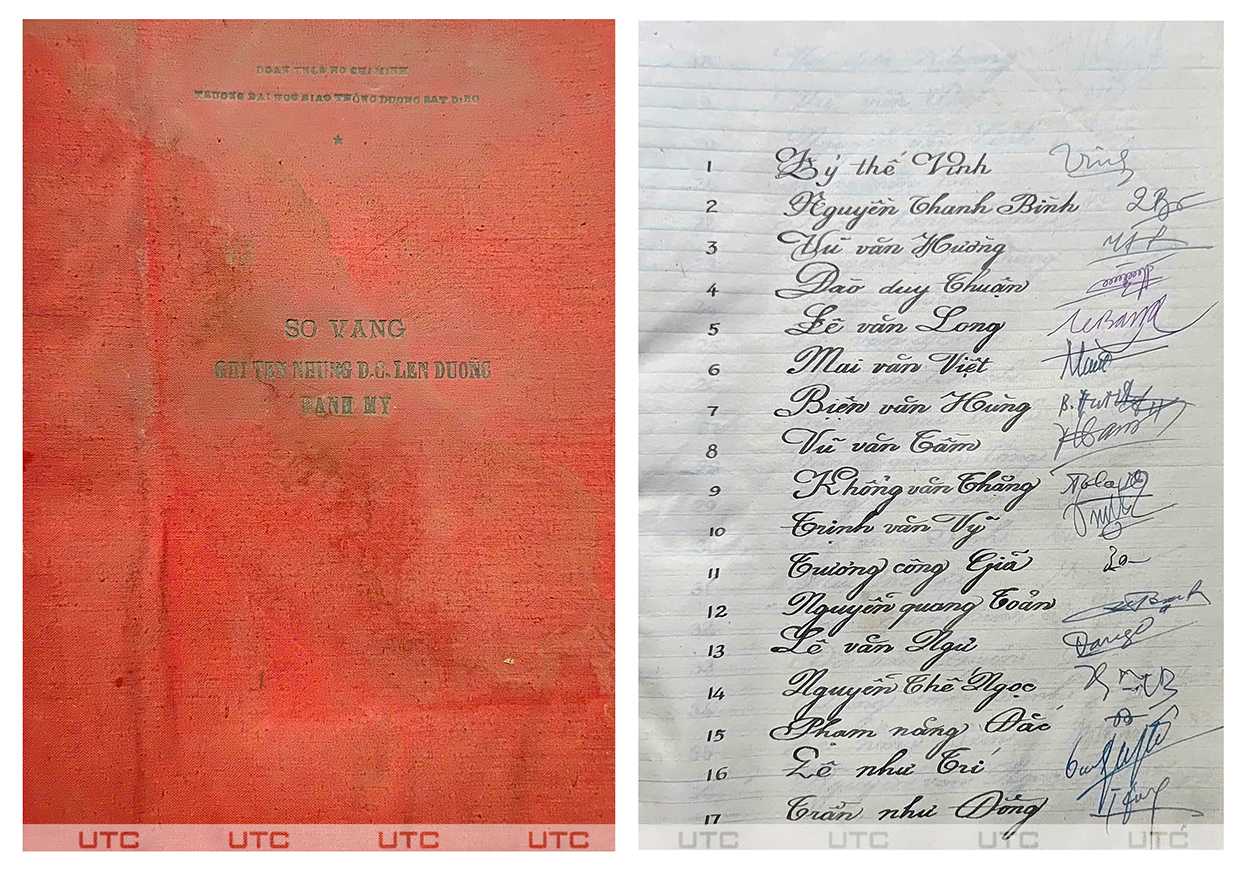 ĐOAN TNLĐ HO CHI MINH
TRUONG DAI HOC GIAO THÔNG DUONG SAT Đ.BO
SO VANG
GHI TEN NHUNG D.C. LEN DUONG
DANH MY
1 Lý thế Vinh Vinh
2 Nguyễn Thanh Bình
3 Vũ văn Hường
4 Đào duy Thuận
5 Lê văn Long
6 Mai văn Việt
7 Biện văn Hùng
8 Vũ văn Tâm
9 Khổng văn Thắng
10 Trịnh văn Vỹ
11 Trương công Giã
12 Nguyễn quang Toản
13 Lê văn Ngư
14 Nguyễn Thế Ngọc
15 Phạm năng Đắc
16 Lê như Trí
17 Trần như Đống
UTC UTC UTC UTC
UTC UTC UTC UTC